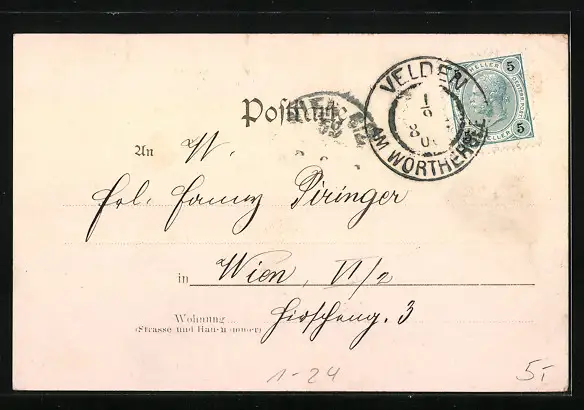 VELDEN
AM WÖRTHERSEE
1
9
5
HELLER
5
Postkarte
An W.
Frl. Fanny Piringer
in Wien, VI/2
Wohnung
(Strasse und Hausnummer)
Hirscheng. 3
1-24
5,-